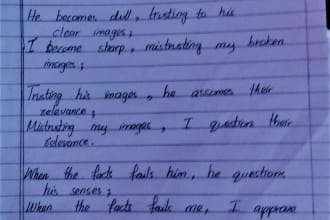 He becomes dull, trusting to his
clear images;
I become sharp, mistrusting my broken
images;
Trusting his images, he assumes their
relevance;
Mistrusting my images, I question their
relevance.
When the facts fails him, he questions
his senses;
When the facts fails me, I approve